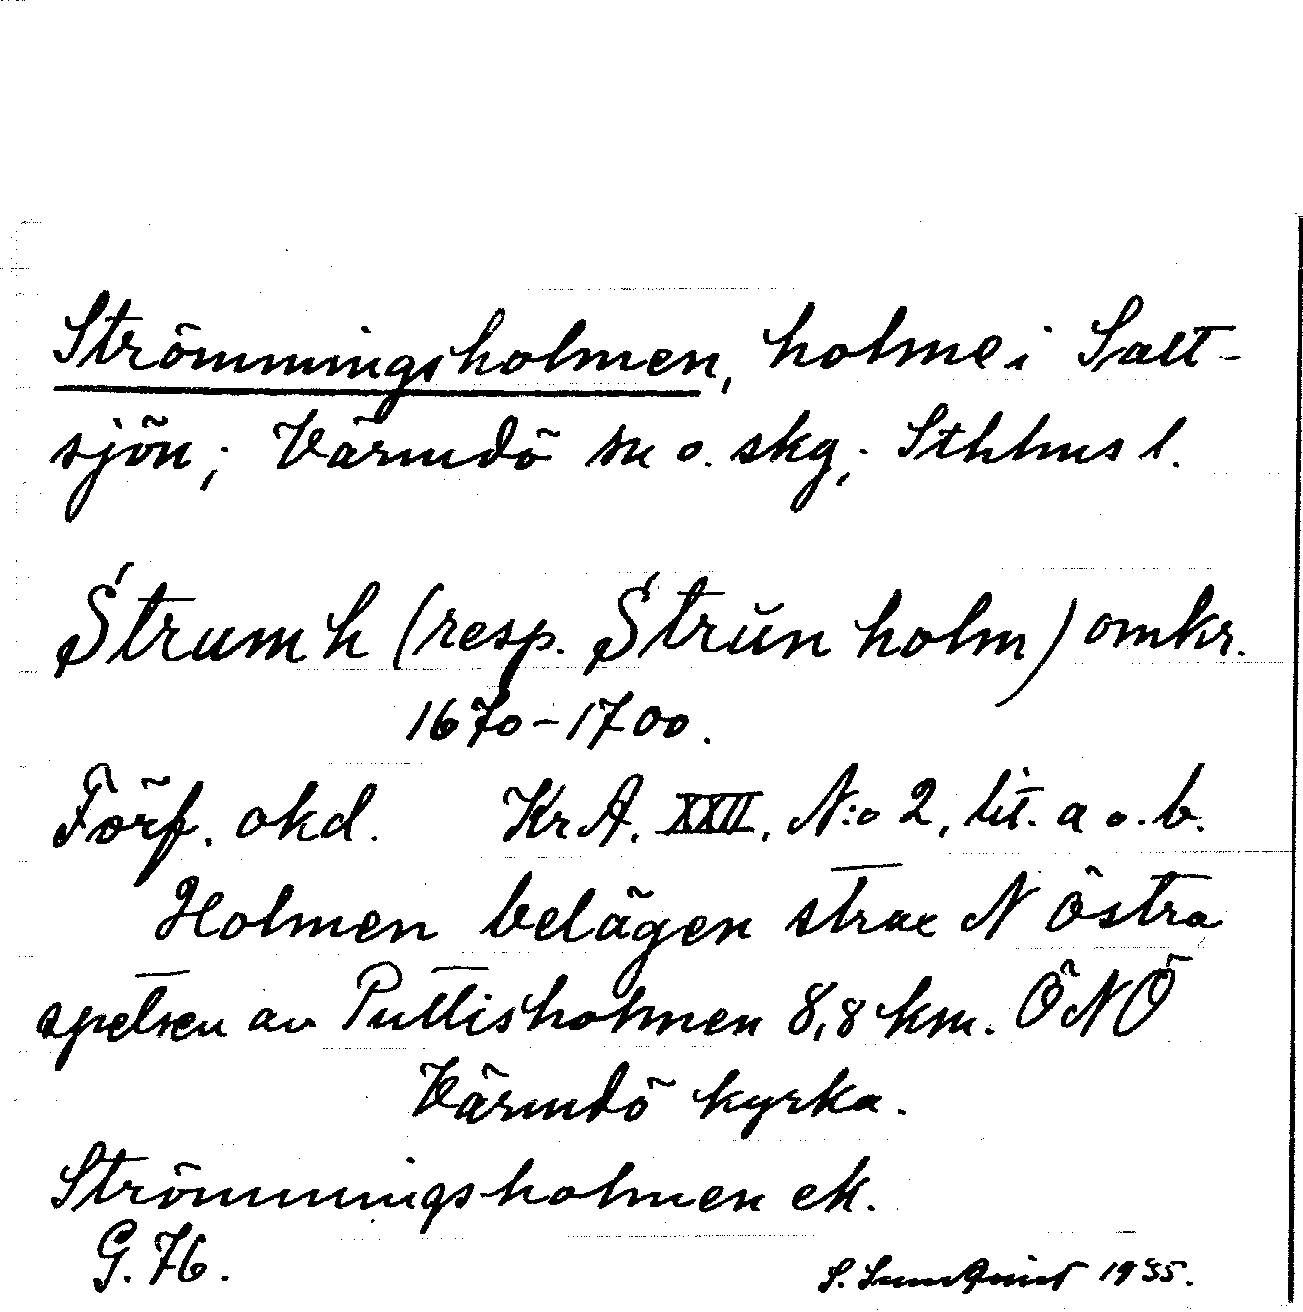 Strömmingsholmen, holme i Salt-
sjön; Värmdö sn o. skg; Sthlms l.
Strumh (resp. Strŭnholm) omkr.
1670-1700.
Förf. okd. Kr A. XXII, N:o 2, lit. a o. b.
Holmen belägen strax N östra
spetsen av Puttisholmen 8,8 km. ÖNÖ
Värmdö kyrka.
Strömmingsholmen ek.
G. 76. S. 1935.